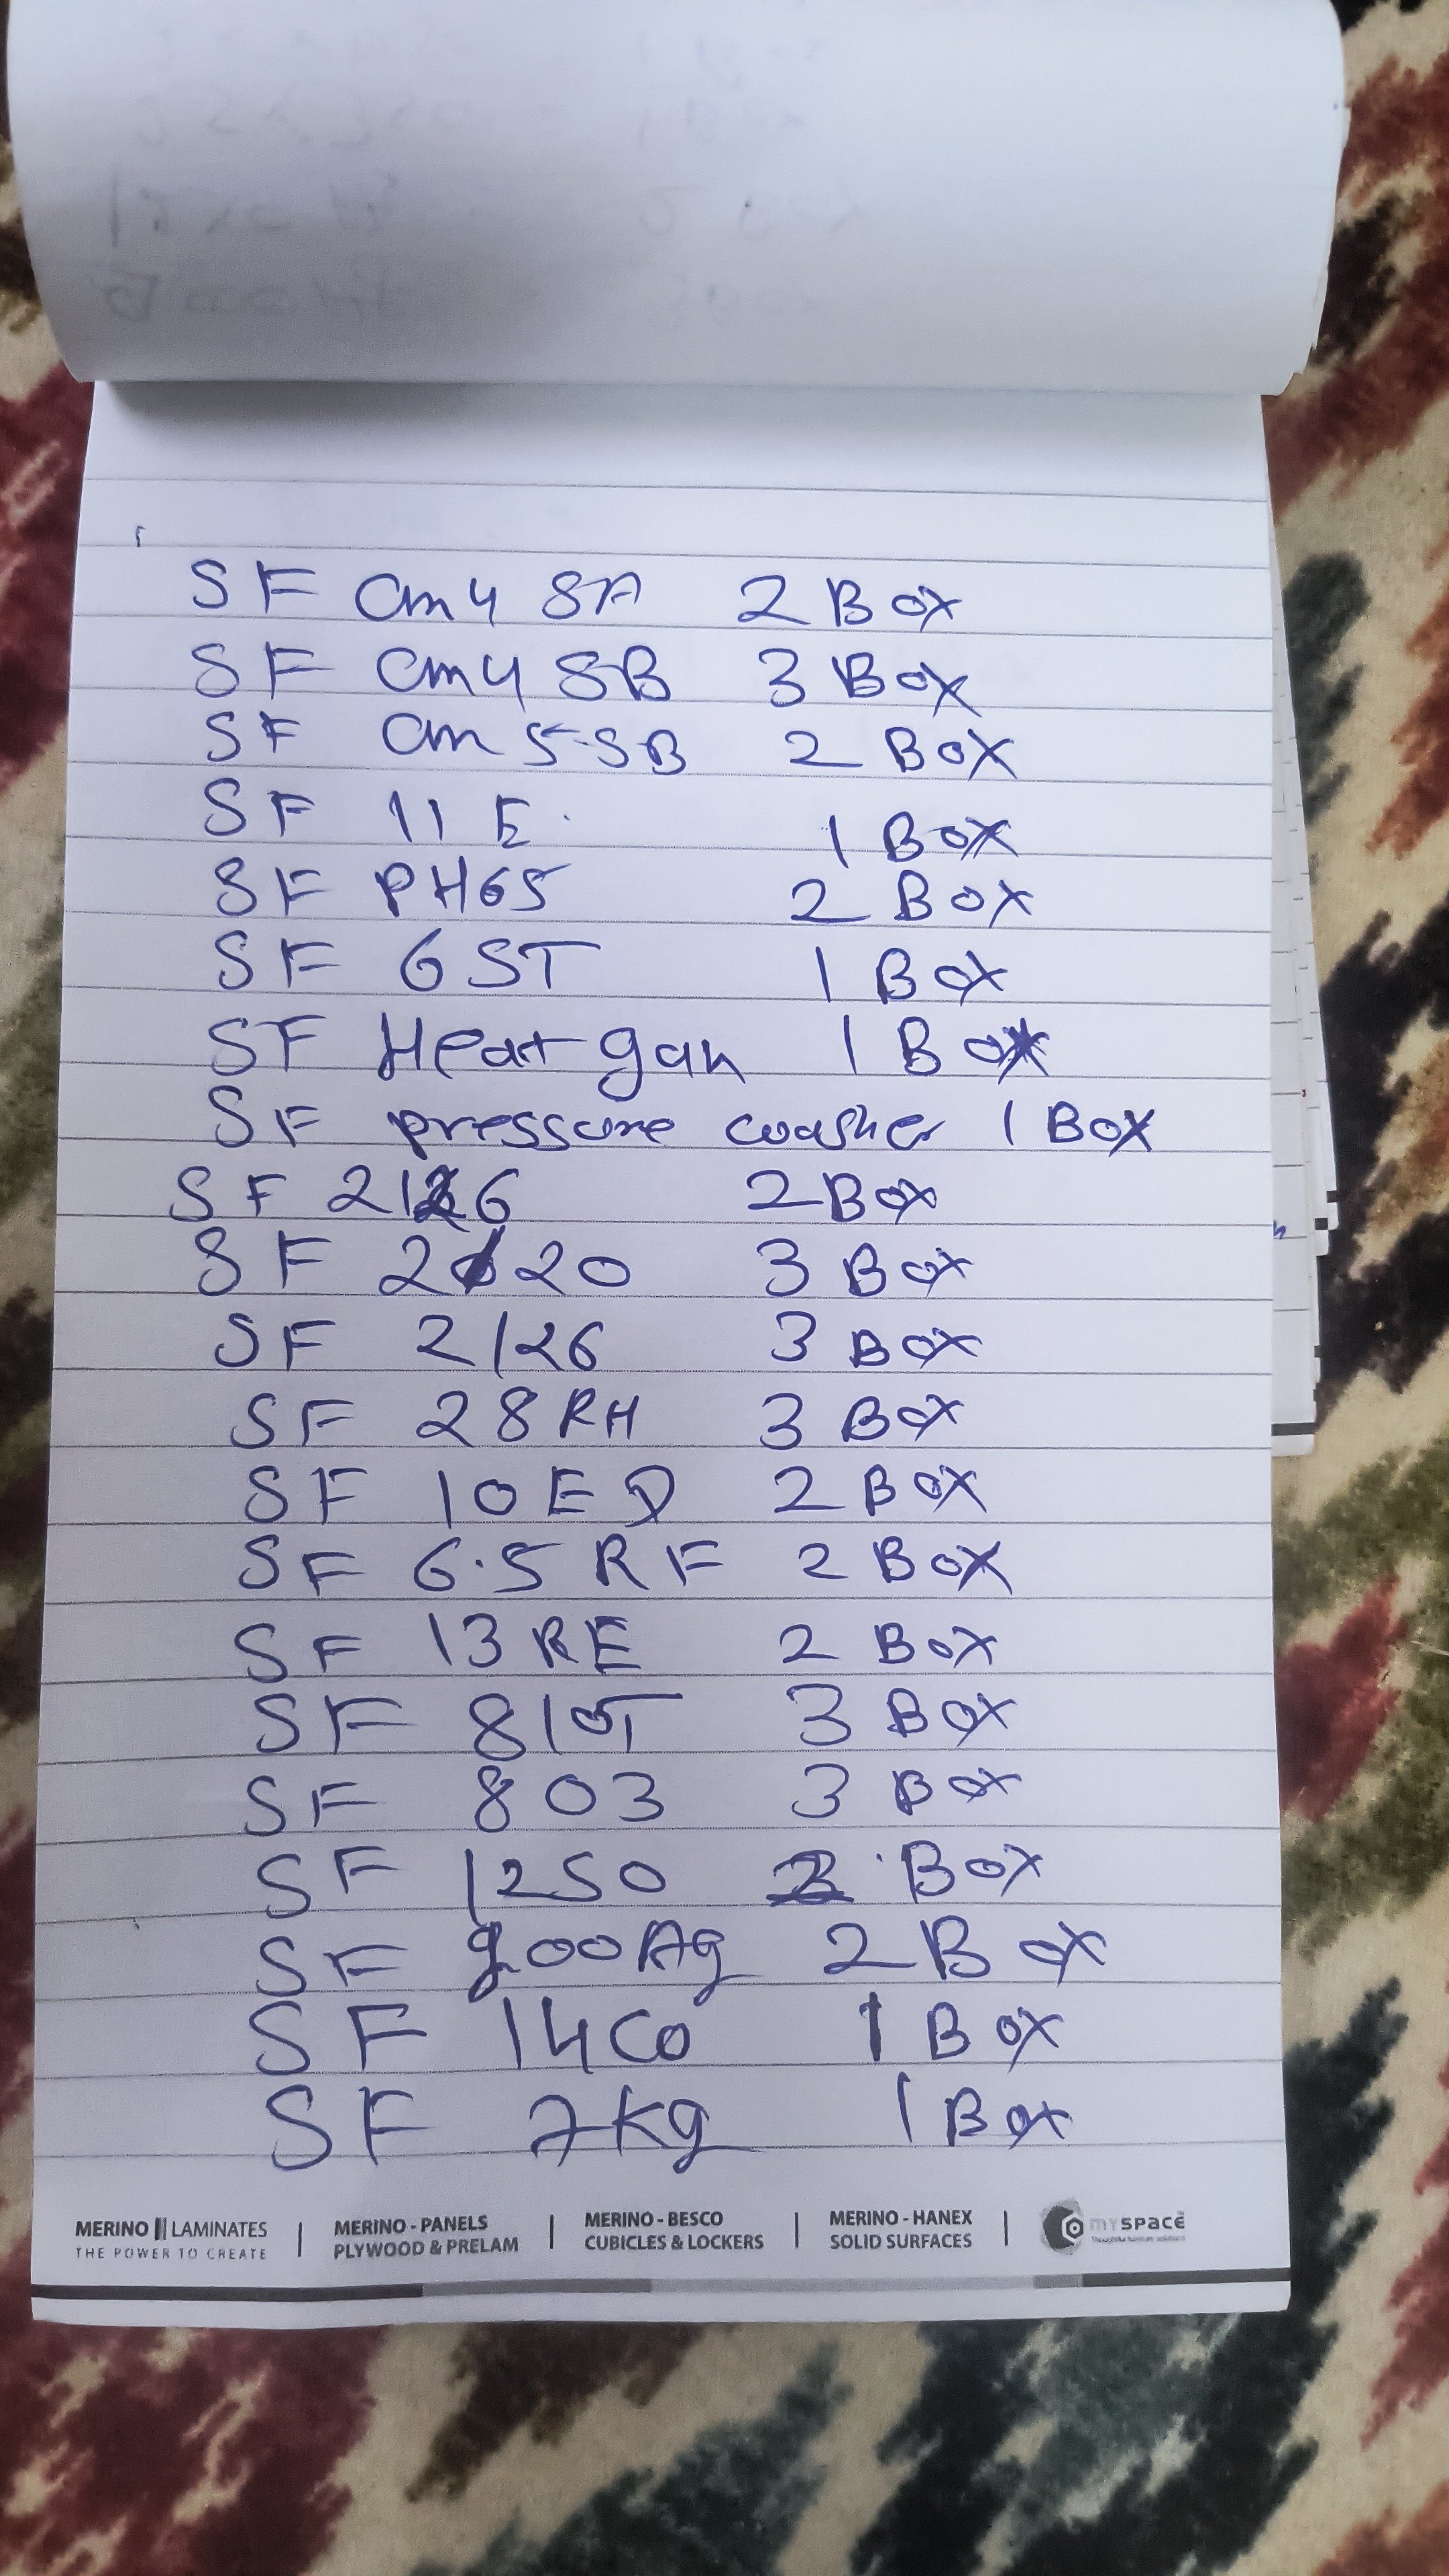 SF Cm4 SA 2 Box
SF Cm4 SB 3 Box
SF Cm 5 SB 2 Box
SF 11 E 1 Box
SF PH65 2 Box
SF 6 ST 1 Box
SF Heat gan 1 Box
SF pressure washer 1 Box
SF 2126 2 Box
SF 20 3 Box
SF 2126 3 Box
SF 28 RH 3 Box
SF 10 ED 2 Box
SF 6.5 RF 2 Box
SF 13 RE 2 Box
SF 810T 3 Box
SF 803 3 Box
SF 1250 Box
SF 2 Box
SF 14Co 1 Box
SF 7Kg 1 Box
MERINO LAMINATES
THE POWER TO CREATE
MERINO - PANELS
PLYWOOD & PRELAM
MERINO - BESCO
CUBICLES & LOCKERS
MERINO - HANEX
SOLID SURFACES
myspace